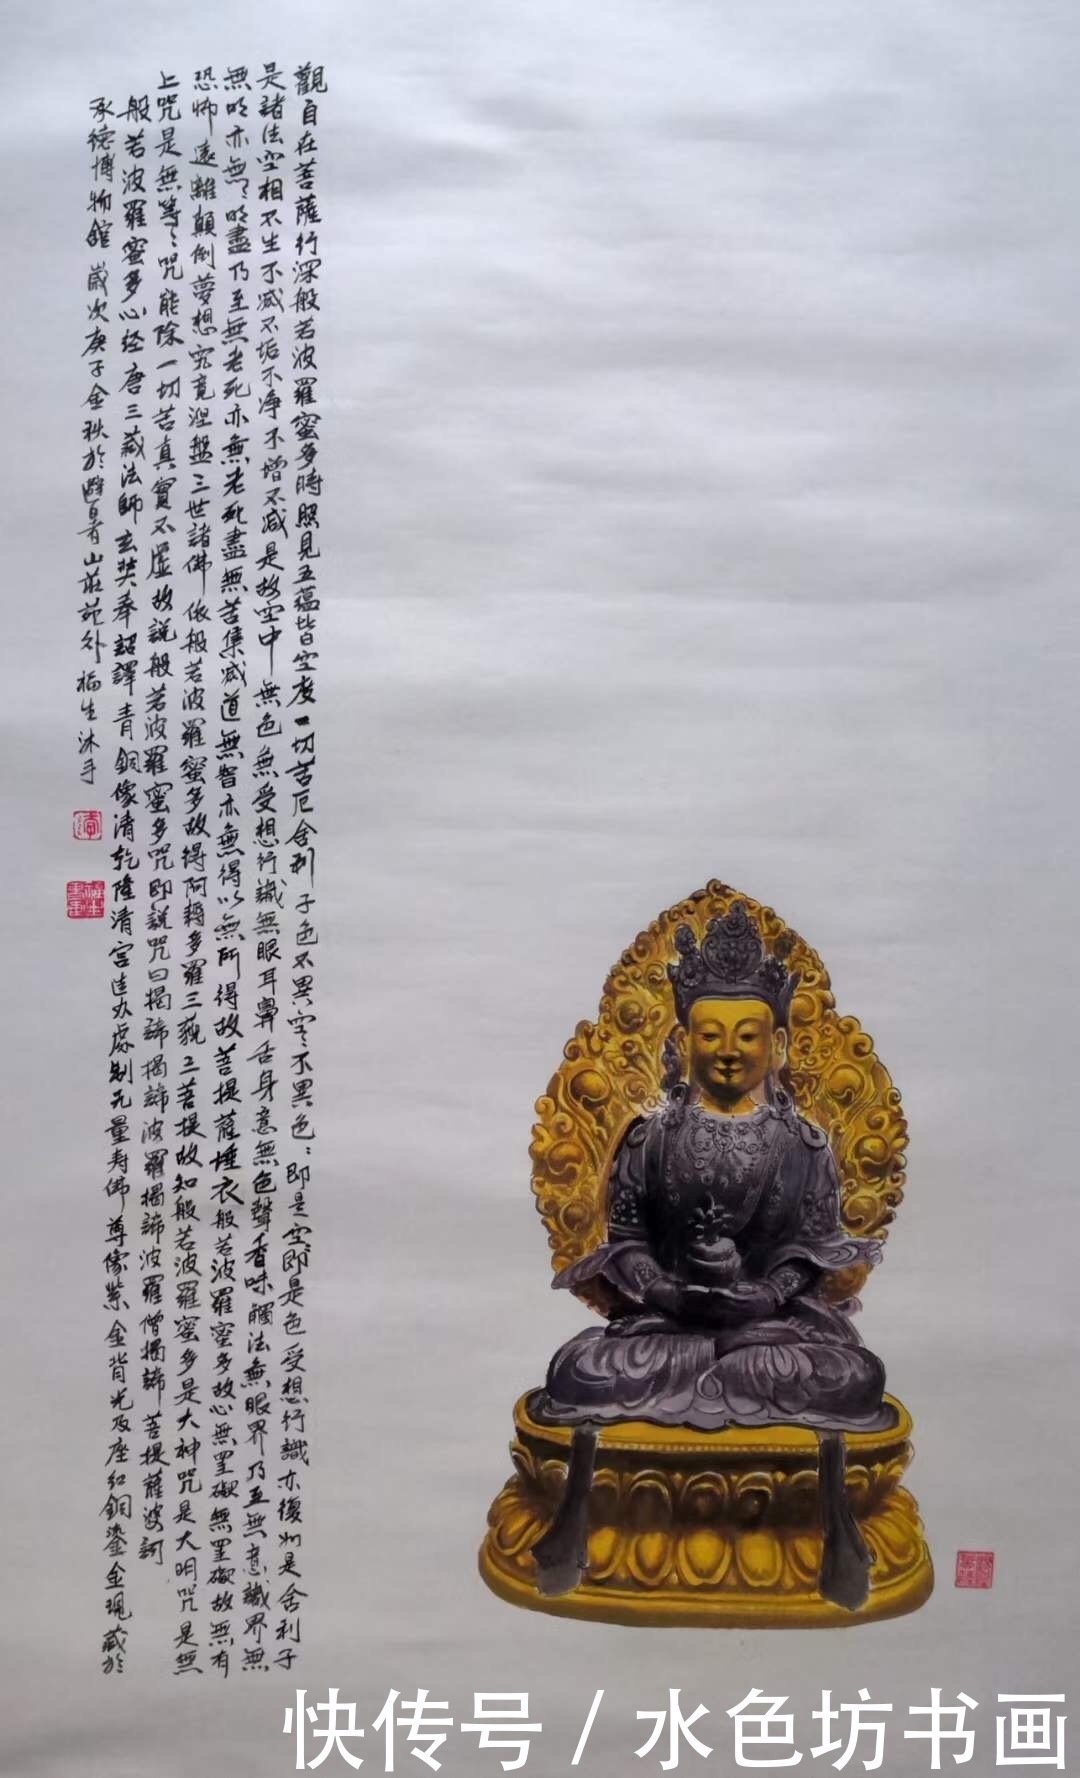 觀自在菩薩行深般若波羅蜜多時照見五蘊皆空度一切苦厄舍利子色不異空〻不異色〻即是空即是色受想行識亦復如是舍利子
是諸法空相不生不滅不垢不净不增不减是故空中無色無受想行識無眼耳鼻舌身意無色聲香味觸法無眼界乃至無意識界無
無明亦無〻明盡乃至無老死亦無老死盡無苦集滅道無智亦無得以無所得故菩提薩埵衣般若波羅蜜多故心無罣礙無罣礙故無有
恐怖遠離顛倒夢想究竟涅盤三世諸佛依般若波羅蜜多故得阿耨多羅三藐三菩提故知般若波羅蜜多是大神咒是大明咒是無
上咒是無等〻咒能除一切苦真實不虛故說般若波羅蜜多咒即說咒曰揭諦揭諦波羅揭諦波羅僧揭諦菩提薩婆訶
般若波羅蜜多心经唐三藏法師玄奘奉詔譯青銅像清乾隆清宫造办處制无量寿佛尊像紫金背光及座红銅鎏金現藏於
承德博物館歲次庚子金秋於避暑山莊苑外福生沐手
快传号/水色坊书画